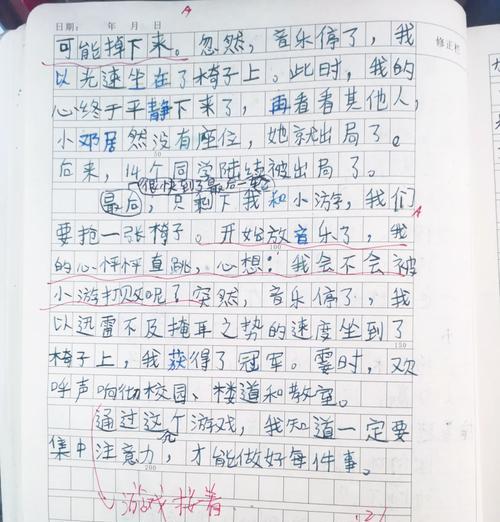 日期： 年 月 日
A
修正栏
可能掉下来。忽然，音乐停了，我
以光速坐在了椅子上。此时，我的
心终于平静下来了，再看看其他人，
小邓居然没有座位，她就出局了。
50
后来，14个同学陆续被出局了。
很快到了最后一轮
最后，只剩下我和小游，我们
A
要抢一张椅子。开始放音乐了，我
100
的心怦怦直跳，心想：我会不会被
小游打败呢？突然，音乐停了，我
以迅雷不及掩耳之势的速度坐到了
150
椅子上，我获得了冠军。霎时，欢
呼声响彻校园、楼道和教室。
通过这个游戏，我知道一定要
集中注意力，才能做好每件事。
200
游戏接着